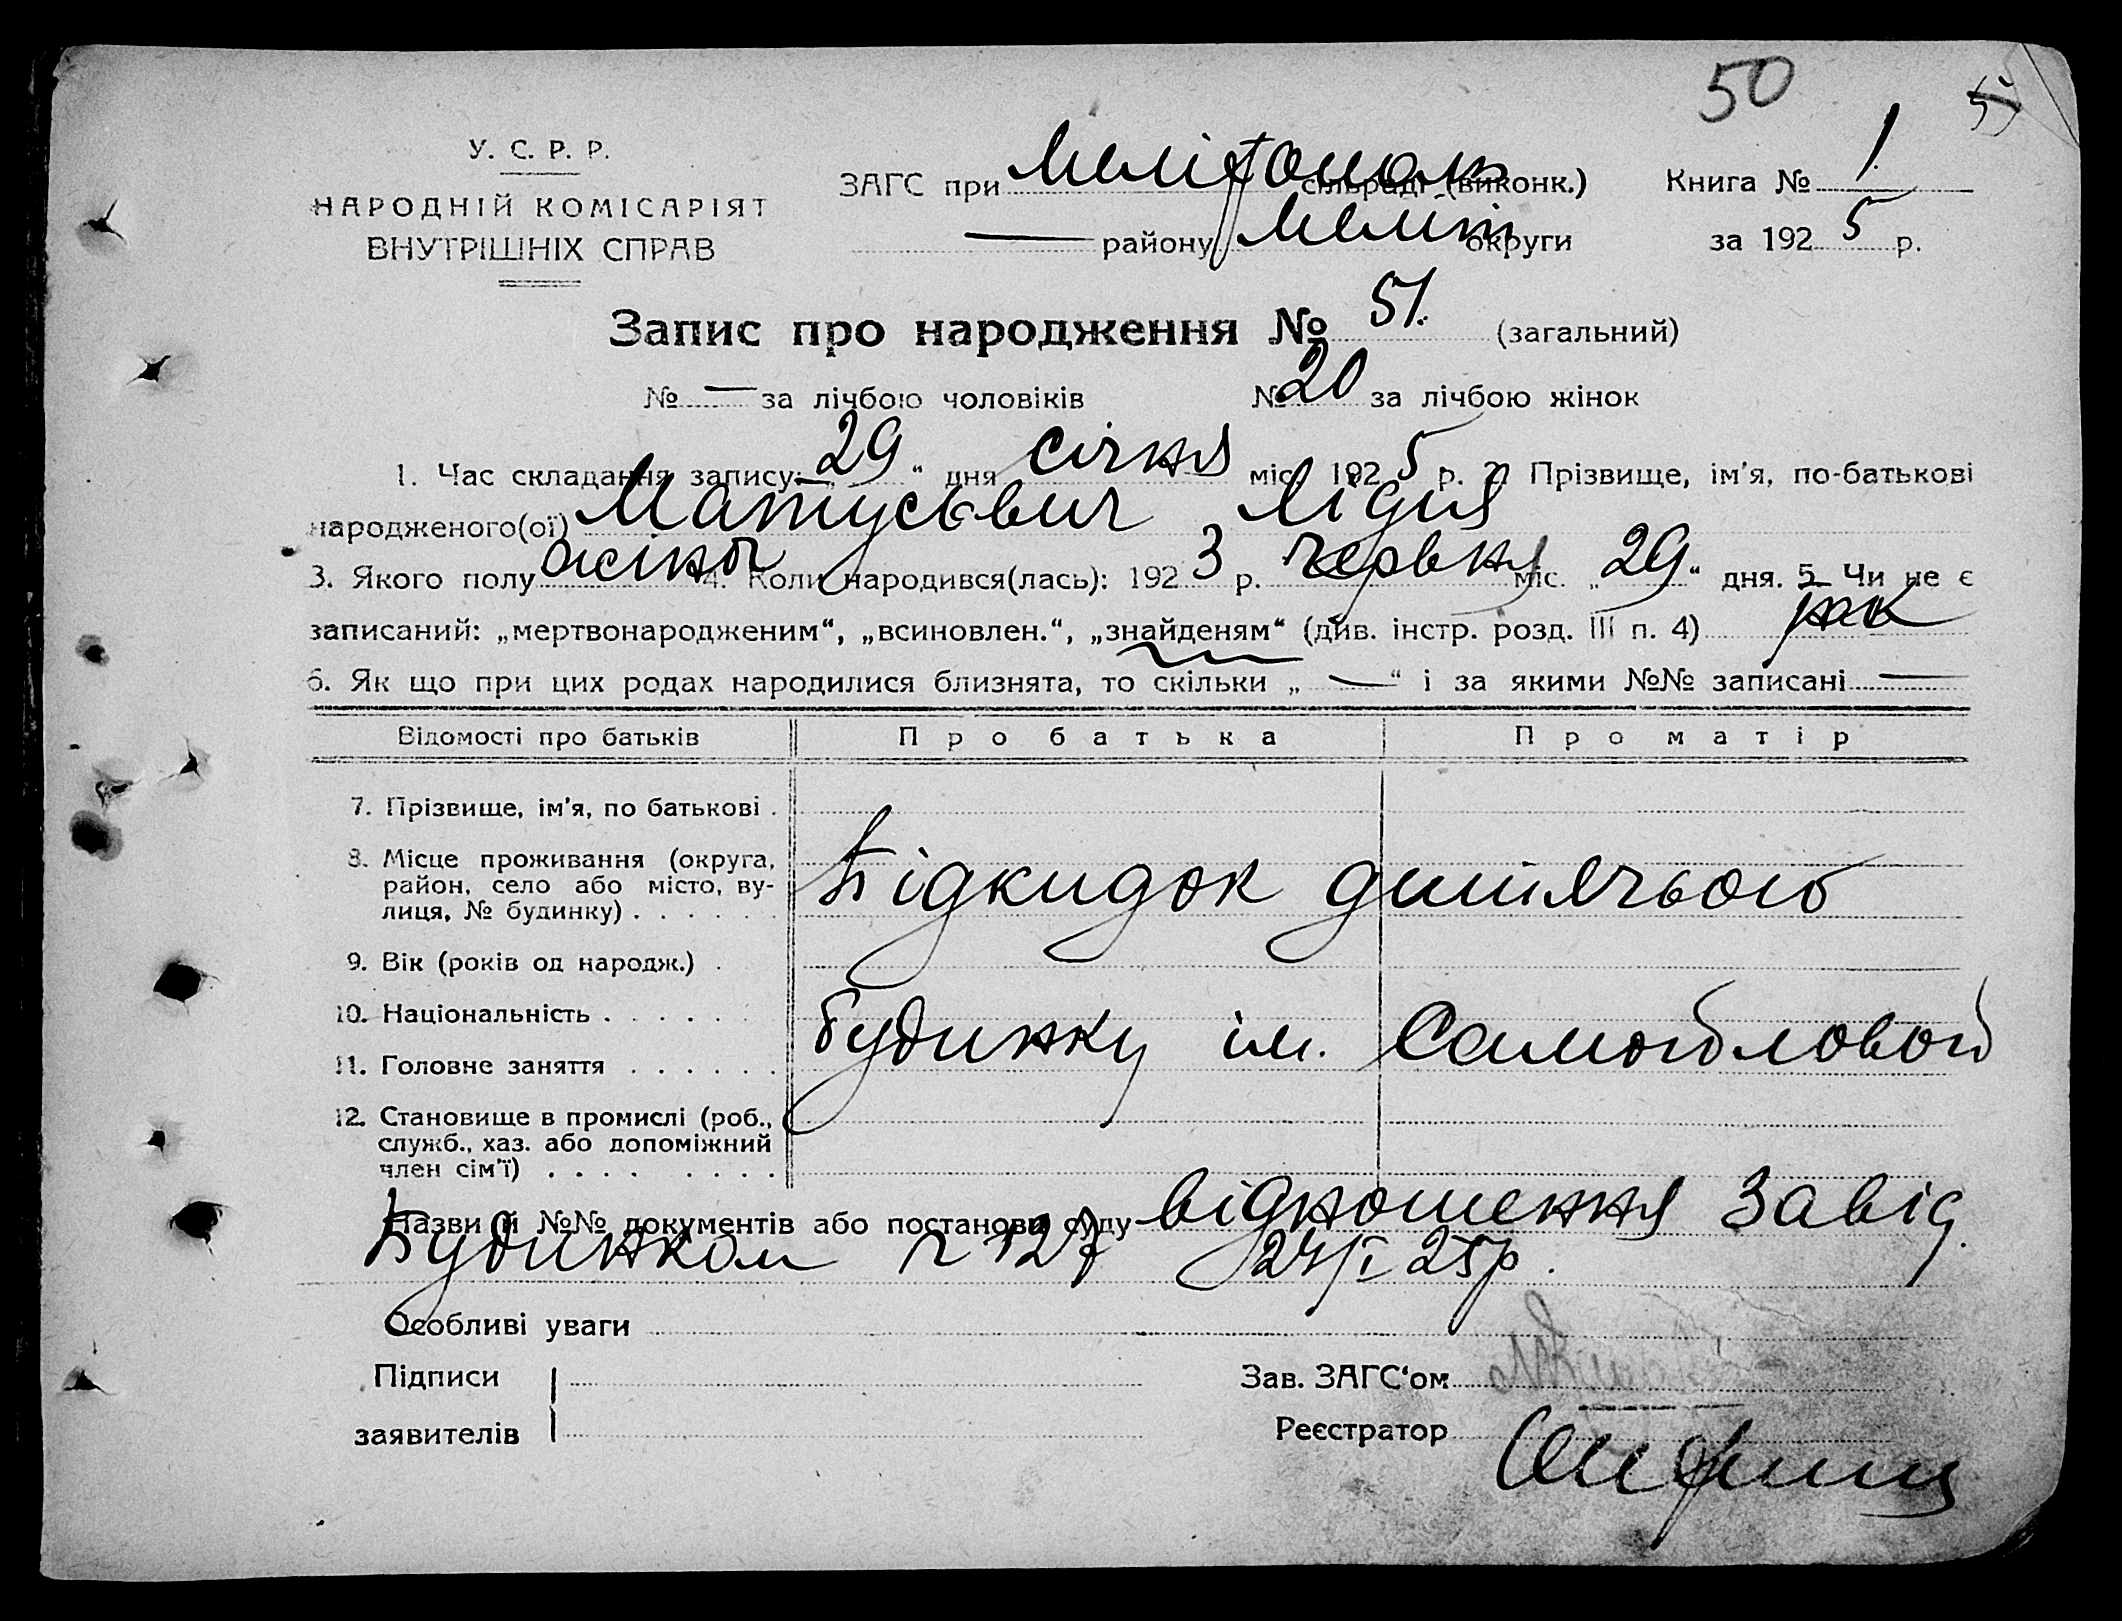 50
У. С. Р. Р.
НАРОДНІЙ КОМІСАРІЯТ
ВНУТРІШНІХ СПРАВ
ЗАГС при Мелітополь сільраді (виконк.) Книга № 1
— району Меліт округи за 192 5 р.
Запис про народження № 51. (загальний)
№ — за лічбою чоловіків № 20 за лічбою жінок
1. Час складання запису: „29“ дня січня міс. 192 5 р. 2. Прізвище, ім'я, по-батькові
народженого(ої) Матусьевич Лідия
3. Якого полу жіноч 4. Коли народився(лась): 192 3 р. червня міс. „29“ дня. 5. Чи не є
записаний: „мертвонародженим“, „всиновлен.“, „знайденям“ (див. інстр. розд. III п. 4)
6. Як що при цих родах народилися близнята, то скільки „ — “ і за якими №№ записані —
Відомості про батьків Про батька Про матір
7. Прізвище, ім'я, по батькові .
8. Місце проживання (округа,
район, село або місто, ву-
лиця, № будинку) . . . . . .
Підкидок дитячього
9. Вік (років од народж.) .
10. Національність . . . . . .
будинку ім. Самойловой
11. Головне заняття . . . . . .
12. Становище в промислі (роб.,
служб., хаз. або допоміжний
член сім'ї) . . . . . . . .
Назви й №№ документів або постанови суду відношення Завід.
Будинком 127 27/I 25р.
Особливі уваги
Підписи
заявителів
Зав. ЗАГС‘ом
Реєстратор